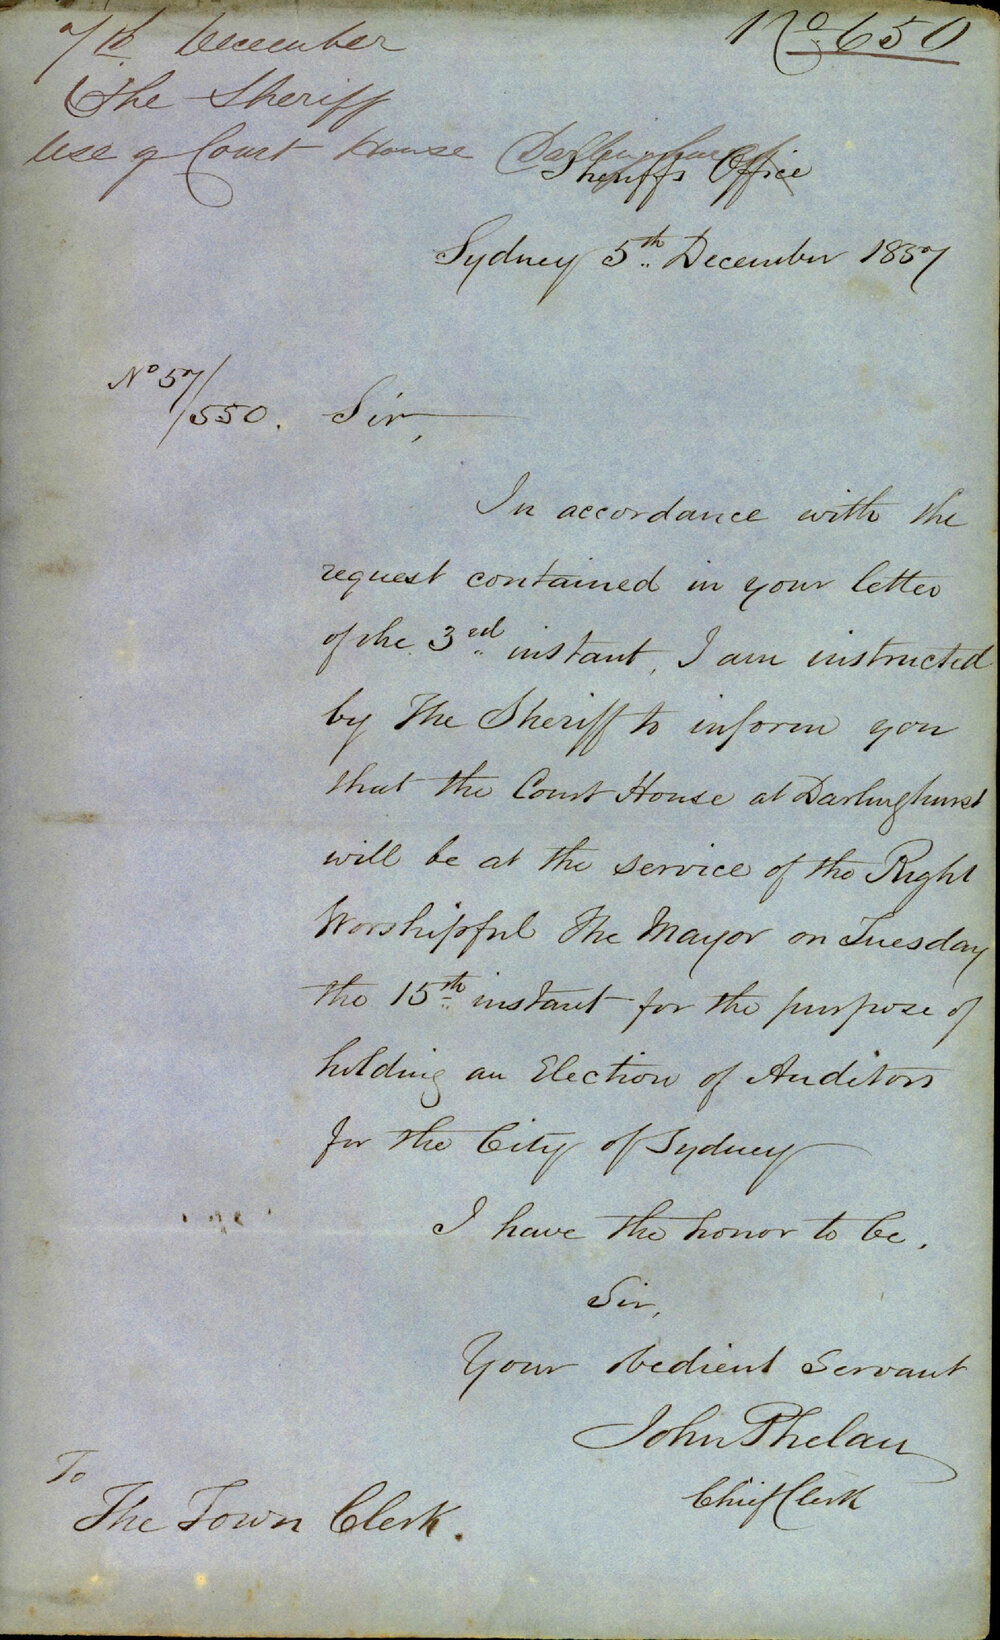 7th December
No. 650
The Sheriff
Use of Court House Darlinghurst
Sheriffs Office
Sydney 5th December 1857
No 57/550.
Sir,
In accordance with the
request contained in your letter
of the 3rd instant, I am instructed
by The Sheriff to inform you
that the Court House at Darlinghurst
will be at the service of the Right
Worshipful The Mayor on Tuesday
the 15th instant for the purpose of
holding an Election of Auditors
for the City of Sydney
I have the honor to be,
Sir,
Your obedient Servant
John Phelan
Chief Clerk
To
The Town Clerk.